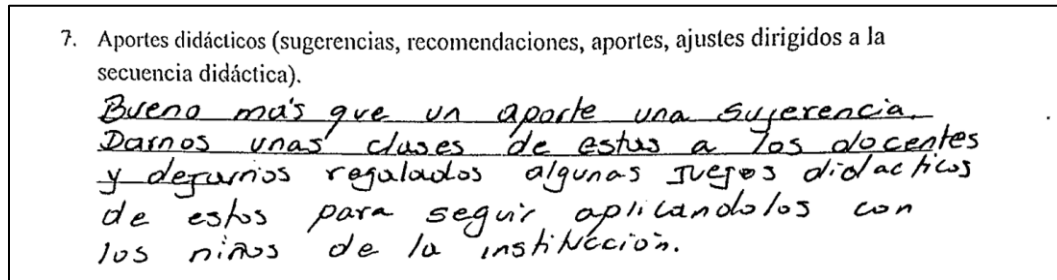 7. Aportes didácticos (sugerencias, recomendaciones, aportes, ajustes dirigidos a la
secuencia didáctica).
Bueno más que un aporte una sujerencia.
Darnos unas clases de estas a los docentes
y dejarnos regalados algunas Juegos didacticos
de estos para seguir aplicandolos con
los niños de la institucción.